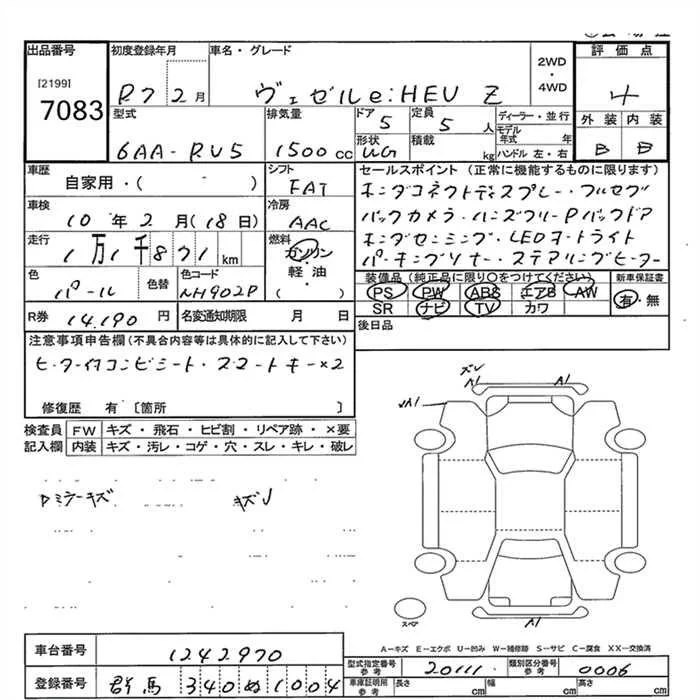 出品番号
[2199]
7083
初度登録年月
R7 2月
車名・グレード
ヴェゼル e:HEV Z
2WD
・
4WD
評価点
4
外装 内装
B B
型式
6AA-RU5
排気量
1500cc
ドア
5
定員
5人
形状
WG
積載
kg
ディーラー・並行
モデル年式 年
ハンドル 左・右
車歴
自家用・( )
シフト
FAT
車検
10年2月(18日)
冷房
AAC
走行
1万1千871km
燃料
ガソリン
・
軽油
( )
色
パール
色替
色コード
NH902P
R券 14,190円
名変通知期限 月 日
セールスポイント (正常に機能するものに限ります)
ホンダコネクトディスプレー・フルセグ
バックカメラ・ハンズフリーPバックドア
ホンダセンシング・LEDオートライト
パーキングソナー・ステアリングヒーター
装備品 (純正品に限り〇をつけてください)
PS PW ABS エアB AW
SR ナビ TV カワ
新車保証書
有・無
後日品
注意事項申告欄(不具合内容等は具体的に記入して下さい)
ヒーター付コンビシート・スマートキー×2
修復歴 有〔箇所 〕
検査員記入欄
FW キズ・飛石・ヒビ割・リペア跡・×要
内装 キズ・汚レ・コゲ・穴・スレ・キレ・破レ
Rミラーキズ
キズ
A1
A1
A1
スペア
A1
A-キズ E-エクボ U-凹み W-補修跡 S-サビ C-腐食 XX-交換済
車台番号 1242970
登録番号 群馬 340 ぬ 1004
型式指定番号
参考
20111
類別区分番号
参考
0006
車庫証明用
参考
長さ cm
幅 cm
高さ cm